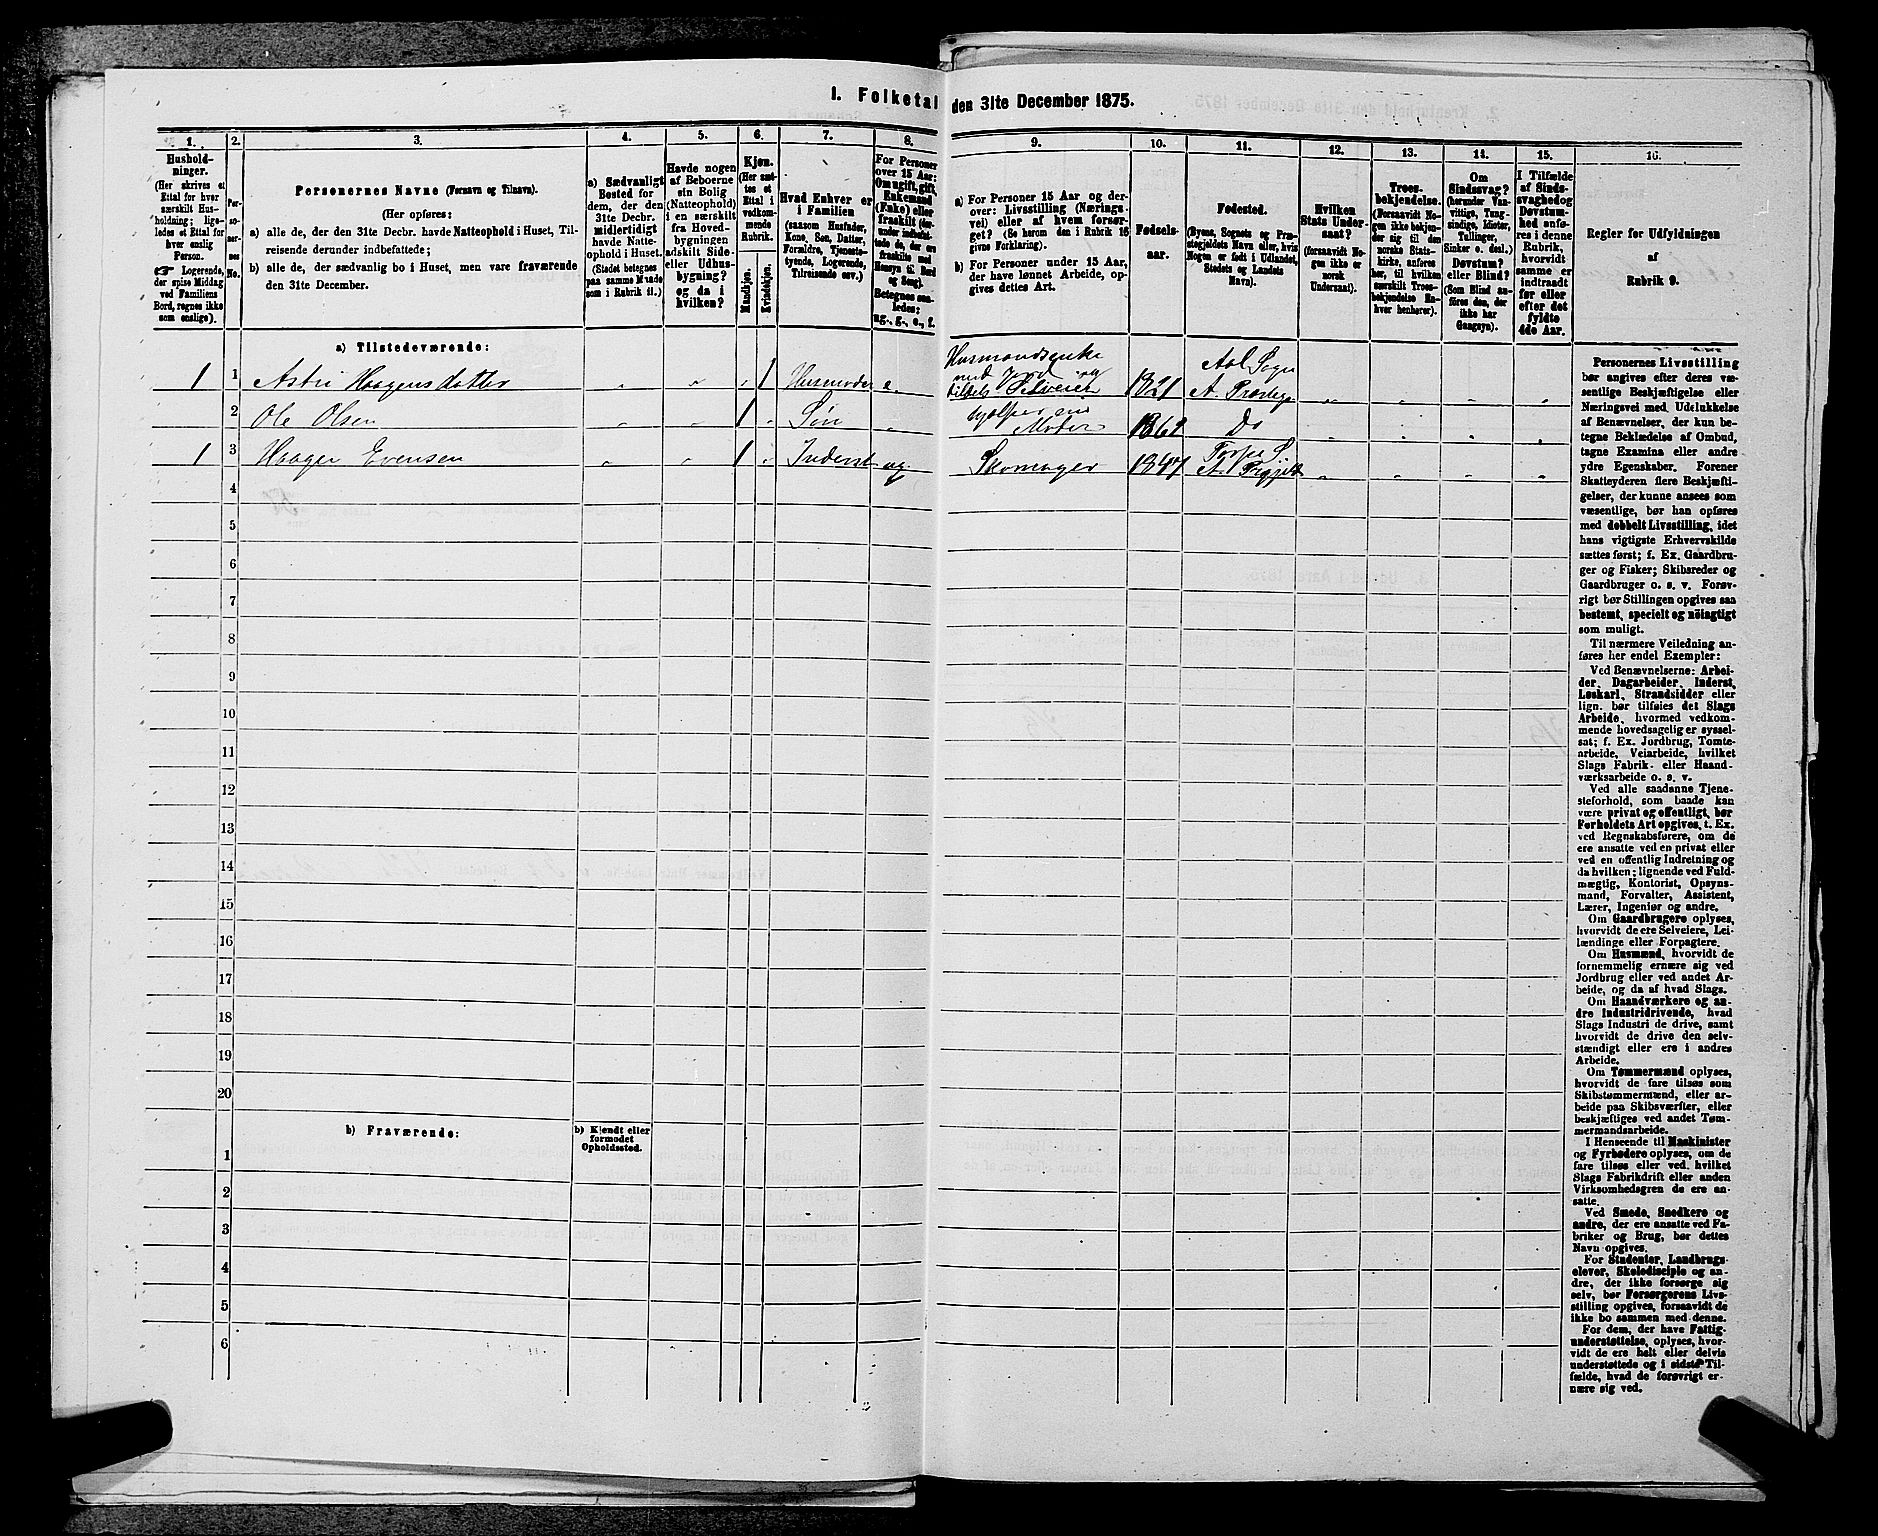 I. Folketal den 31te December 1875.
1.
Husholdninger.
(Her skrives et
Ettal for hver
særskilt Husholdning;
ligeledes et Ettal for
hver enslig
Person.
Logerende,
der spise Middag
ved Familiens
Bord, regnes ikke
som enslige).
2.
Personernes
No.
3.
Personernes Navne (Fornavn og Tilnavn).
(Her opføres:
a) alle de, der den 31te Decbr. havde Natteophold i Huset, Tilreisende derunder indbefattede;
b) alle de, der sædvanlig bo i Huset, men vare fraværende den 31te December.
4.
a) Sædvanligt
Bosted for
dem, der den
31te Decbr.
midlertidigt
havde Natteophold
i Huset.
(Stedet betegnes
paa samme Maade
som i Rubrik 11.)
5.
Havde nogen
af Beboerne
sin Bolig
(Natteophold)
i en særskilt
fra Hovedbygningen
adskilt Side-
eller Udhusbygning?
og da i
hvilken?
6.
Kjøn.
(Her sættes et
Ettal i
vedkommende
Rubrik.
Mandkjøn.
Kvindekjøn.
7.
Hvad Enhver er
i Familien
(saasom Husfader,
Kone, Søn, Datter,
Forældre, Tjenestetyende,
Logerende,
Tilreisende osv.)
8.
For Personer
over 15 Aar:
Om ugift, gift,
Enkemand
(Enke) eller
fraskilt
Betegnes saaledes:
ug., g., e., f.
9.
a) For Personer 15 Aar og derover: Livsstilling (Næringsvei) eller af hvem forsørget? (Se herom den i Rubrik 16 givne Forklaring).
b) For Personer under 15 Aar, der have lønnet Arbeide, opgives dettes Art.
10.
Fødselsaar.
11.
Fødested.
(Byens, Sognets og Præstegjeldets Navn eller, hvis Nogen er født i Udlandet, Stedets og Landets Navn).
12.
Hvilken
Stats Undersaat?
(forsaavidt Nogen
ikke er
norsk
Undersaat).
13.
Troesbekjendelse.
(Forsaavidt Nogen
ikke bekjender
sig til den
norske Statskirke,
anføres
her, til hvilken
særskilt Troesbekjendelse
Enhver henhører).
14.
Om
Sindssvag?
(herunder Vanvittige,
Tungsindige, Idioter,
Tullinger,
Sinker o. desl.)
Døvstum?
eller Blind?
(Som Blind anføres
den, der
ikke har
Gangsyn).
15.
I Tilfælde
af Sindssvaghed
og
Døvstumhed
anføres
i denne
Rubrik,
hvorvidt
samme er
indtraadt
før eller
efter det
fyldte
4de Aar.
16.
Regler for Udfyldningen
af
Rubrik 9.
a) Tilstedeværende:
1 1 Astri Haagensdatter „ „ „ 1 Husmoder e. Husmandsenke med Jord og tildels Selveier 1821 Aal Sogn A. Præsteg. „ „ „ „
2 Ole Olsen „ „ 1 „ Søn „ hjælper sin Moder 1862 Do „ „ „ „
1 3 Haagen Evensen „ „ 1 „ Inderst ug. Skomager 1847 Torpe S. A. Prgjld „ „ „ „
4
5
6
7
8
9
10
11
12
13
14
15
16
17
18
19
20
b) Fraværende:
b) Kjendt eller
formodet
Opholdssted.
1
2
3
4
5
6
Personernes Livsstilling
bør angives efter deres væsentlige
Beskjæftigelse eller
Næringsvei med Udelukkelse
af Benævnelser, der kun betegne
Beklædelse af Ombud,
tagne Examina eller andre
ydre Egenskaber. Forener
Skatteyderen flere Beskjæftigelser,
der kunne ansees som
væsentlige, bør han opføres
med dobbelt Livsstilling, idet
hans vigtigste Erhvervskilde
sættes først; f. Ex. Gaardbruger
og Fisker; Skibsreder og
Gaardbruger o. s. v. Forøvrigt
bør Stillingen opgives saa
bestemt, specielt og nöiagtigt
som muligt.
Til nærmere Veiledning anføres
her endel Exempler:
Ved Benævnelserne: Arbeider,
Dagarbeider, Inderst,
Løskarl, Strandsidder eller
lign. bør tilføies det Slags
Arbeide, hvormed vedkommende
hovedsagelig er sysselsat;
f. Ex. Jordbrug, Tomtearbeide,
Veiarbeide, hvilket
Slags Fabrik- eller Haandværksarbeide
o. s. v.
Ved alle saadanne Tjenesteforhold,
som baade kan
være privat og offentligt, bør
Forholdets Art opgives, t. Ex.
ved Regnskabsførere, om de
ere ansatte ved en privat eller
ved en offentlig Indretning og
da hvilken; lignende ved Fuldmægtig,
Kontorist, Opsynsmand,
Forvalter, Assistent,
Lærer, Ingeniør og andre.
Om Gaardbrugere oplyses,
hvorvidt de ere Selveiere, Leilændinge
eller Forpagtere.
Om Husmænd, hvorvidt de
fornemmelig ernære sig ved
Jordbrug eller ved andet Arbeide,
og da af hvad Slags.
Om Haandværkere og andre
Industridrivende, hvad
Slags Industri de drive, samt
hvorvidt de drive den selvstændigt
eller ere i andres
Arbeide.
Om Tømmermænd oplyses,
hvorvidt de fare tilsøs som
Skibstømmermænd, eller arbeide
paa Skibsværfter, eller
beskjæftiges ved andet Tømmermandsarbeide.
I Henseende til Maskinister
og Fyrbødere oplyses, om de
fare tilsøs eller ved. hvilket
Slags Fabrikdrift eller anden
Virksomhedsgren de ere ansatte.
Ved Smede, Snedkere og
andre, der ere ansatte ved Fabriker
og Brug, bør dettes
Navn opgives.
For Studenter, Landbrugselever,
Skoledisciple og andre,
der ikke forsørge sig
selv, bør Forsørgerens Livsstilling
opgives, forsaavidt de
ikke bo sammen med denne.
For dem, der have Fattigunderstøttelse,
oplyses, hvorvidt
de ere helt eller delvis
understøttede og i sidste Tilfælde,
hvad de forøvrigt ernære
sig ved.